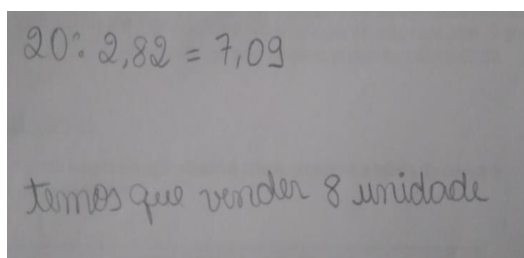 20: 2,82 = 7,09
temos que vender 8 unidade